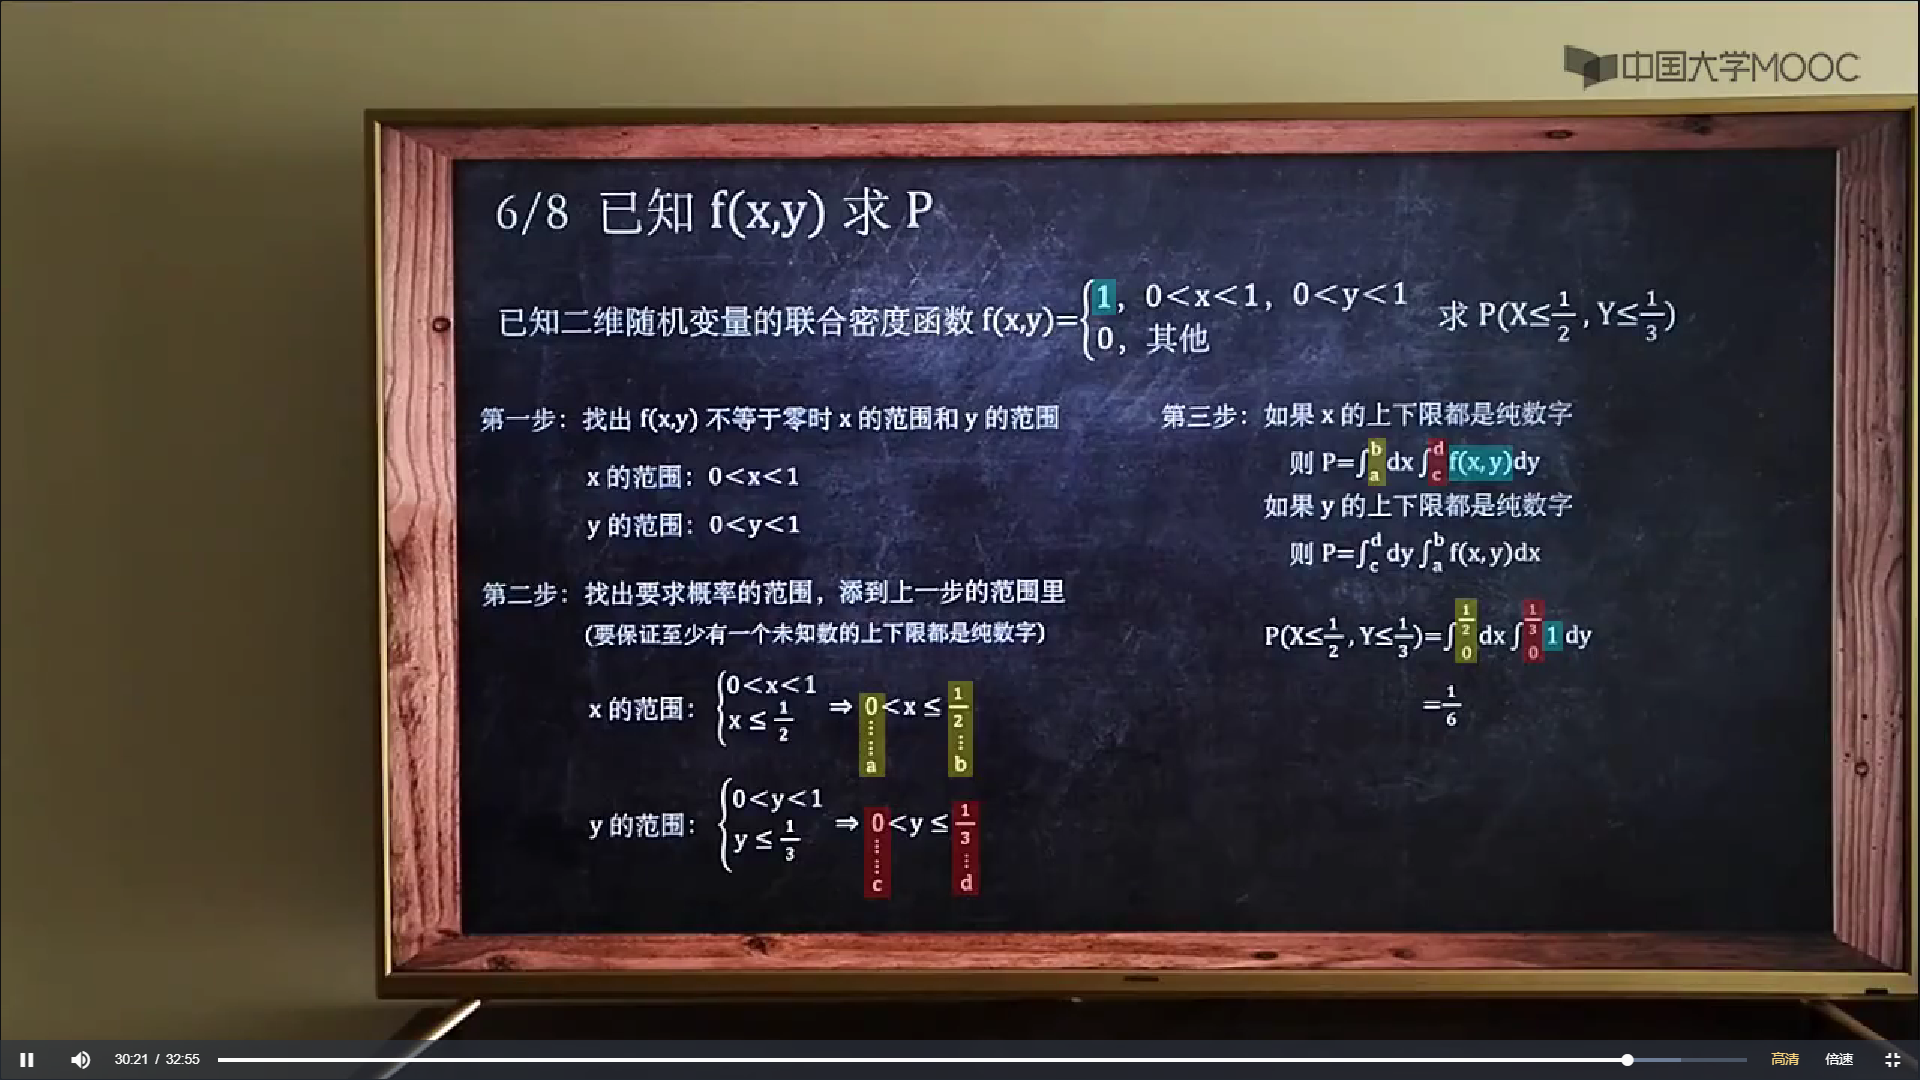 中国大学MOOC
6/8 已知 f(x,y) 求 P
已知二维随机变量的联合密度函数 f(x,y)={1，0<x<1，0<y<1
0，其他
求 P(X≤1/2 , Y≤1/3)
第一步：找出 f(x,y) 不等于零时 x 的范围和 y 的范围
x 的范围：0<x<1
y 的范围：0<y<1
第二步：找出要求概率的范围，添到上一步的范围里
(要保证至少有一个未知数的上下限都是纯数字)
x 的范围：{0<x<1
x ≤ 1/2
⇒ 0<x ≤ 1/2
a b
y 的范围：{0<y<1
y ≤ 1/3
⇒ 0<y ≤ 1/3
c d
第三步：如果 x 的上下限都是纯数字
则 P=∫_a^b dx ∫_c^d f(x,y)dy
如果 y 的上下限都是纯数字
则 P=∫_c^d dy ∫_a^b f(x,y)dx
P(X≤1/2 , Y≤1/3)=∫_0^{1/2} dx ∫_0^{1/3} 1 dy
=1/6
30:21 / 32:55
高清 倍速